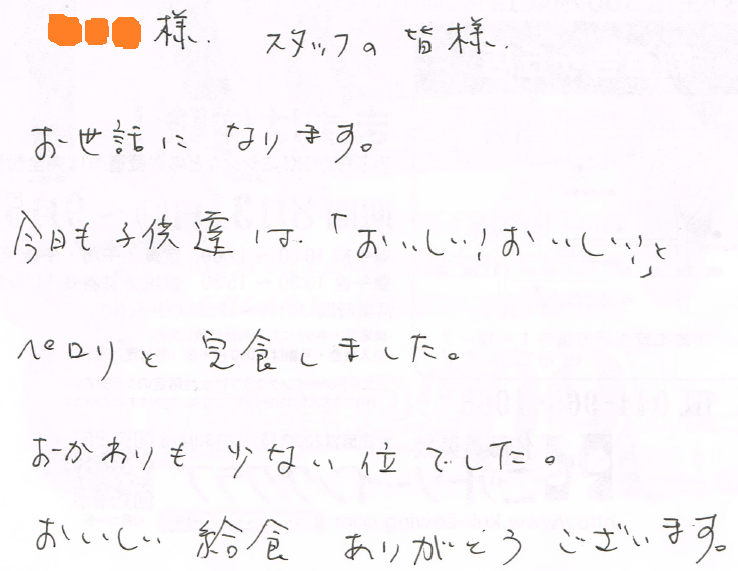 様. スタッフの 皆様.
お世話に なります。
今日も 子供達は.「おいしい!おいしい!」と
ペロリと 完食しました。
おかわりも 少ない位でした。
おいしい 給食 ありがとうございます。